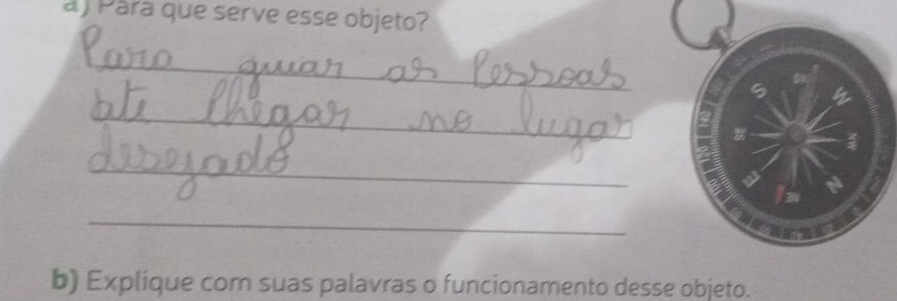 a) Para que serve esse objeto?
Para guiar as Pessoas
ate Chegar no lugar
desejado
b) Explique com suas palavras o funcionamento desse objeto.
S
W
SE
NW
E
N
NE